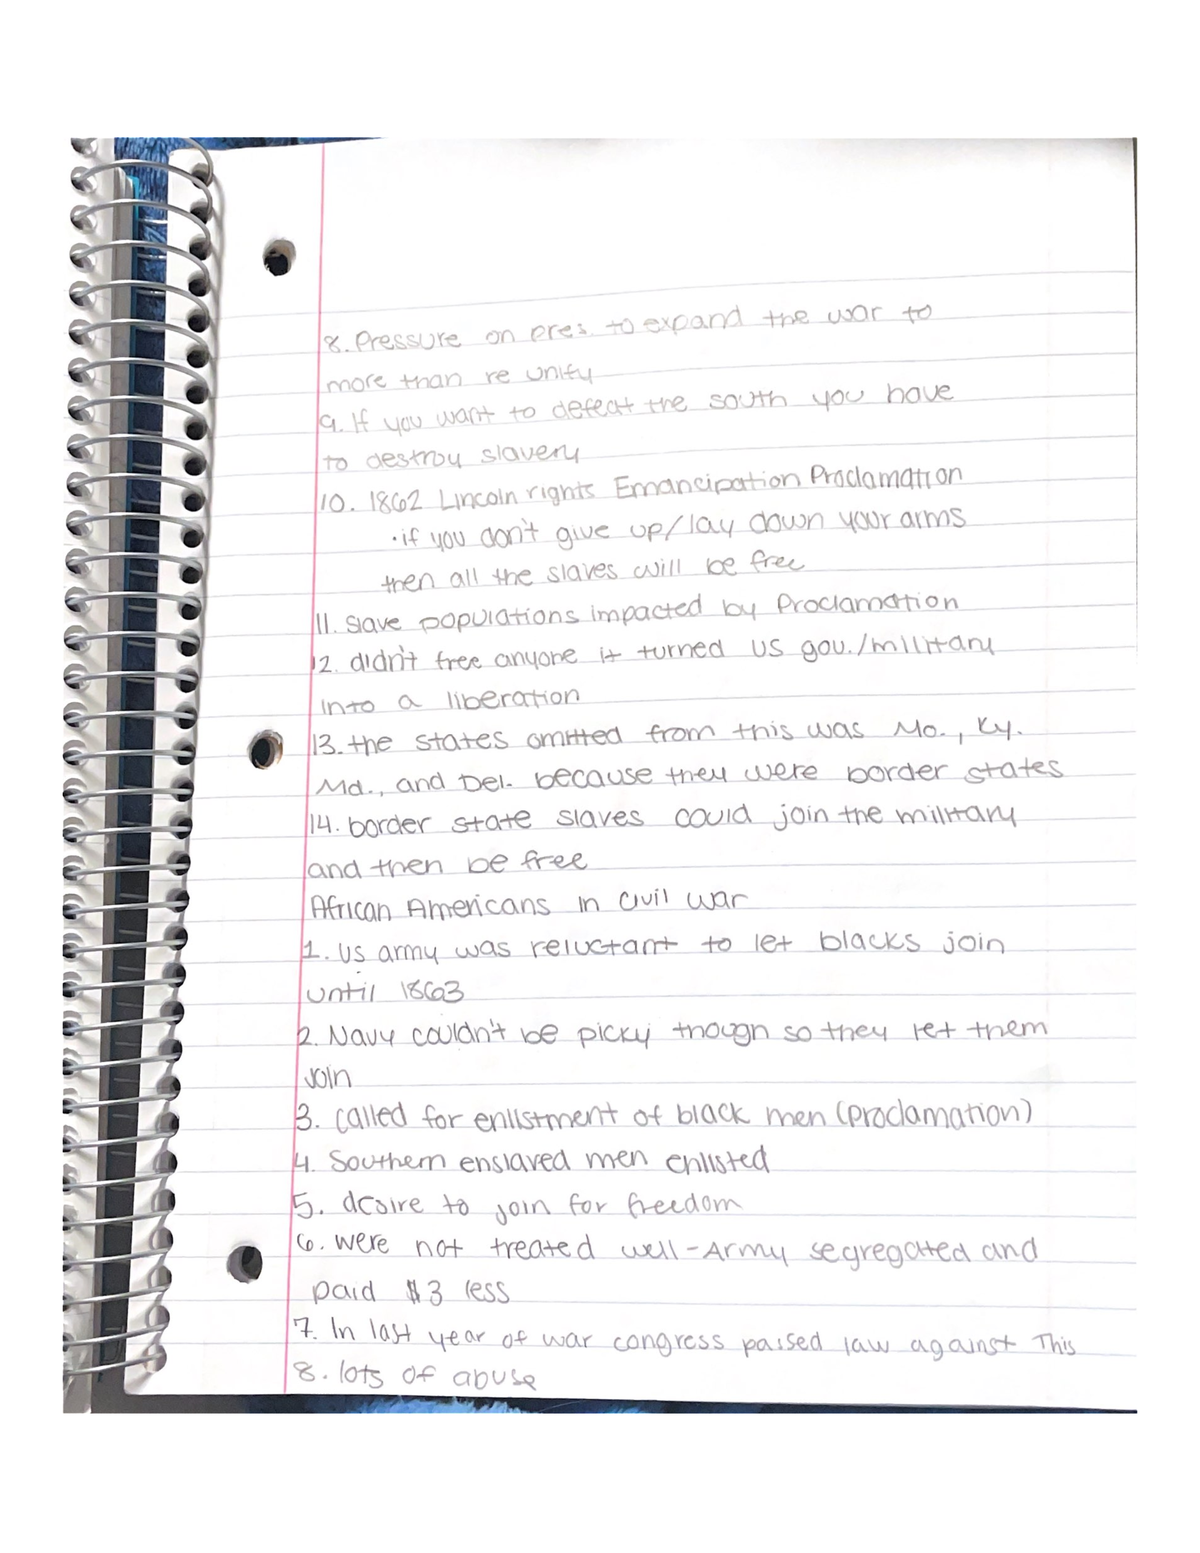 8. Pressure on pres. to expand the war to
more than re unify
9. If you want to defeat the south you have
to destroy slavery
10. 1862 Lincoln rights Emancipation Proclamation
• if you don't give up/lay down your arms
then all the slaves will be free
11. slave populations impacted by Proclamation
12. didn't free anyone it turned US gov./military
into a liberation
13. the states omitted from this was Mo., Ky.
Md., and Del. because they were border states
14. border state slaves could join the military
and then be free
African Americans in Civil war
1. US army was reluctant to let blacks join
until 1863
2. Navy couldn't be picky though so they let them
join
3. called for enlistment of black men (proclamation)
4. Southern enslaved men enlisted
5. desire to join for freedom
6. were not treated well-Army segregated and
paid $3 less
7. In last year of war congress passed law against This
8. lots of abuse